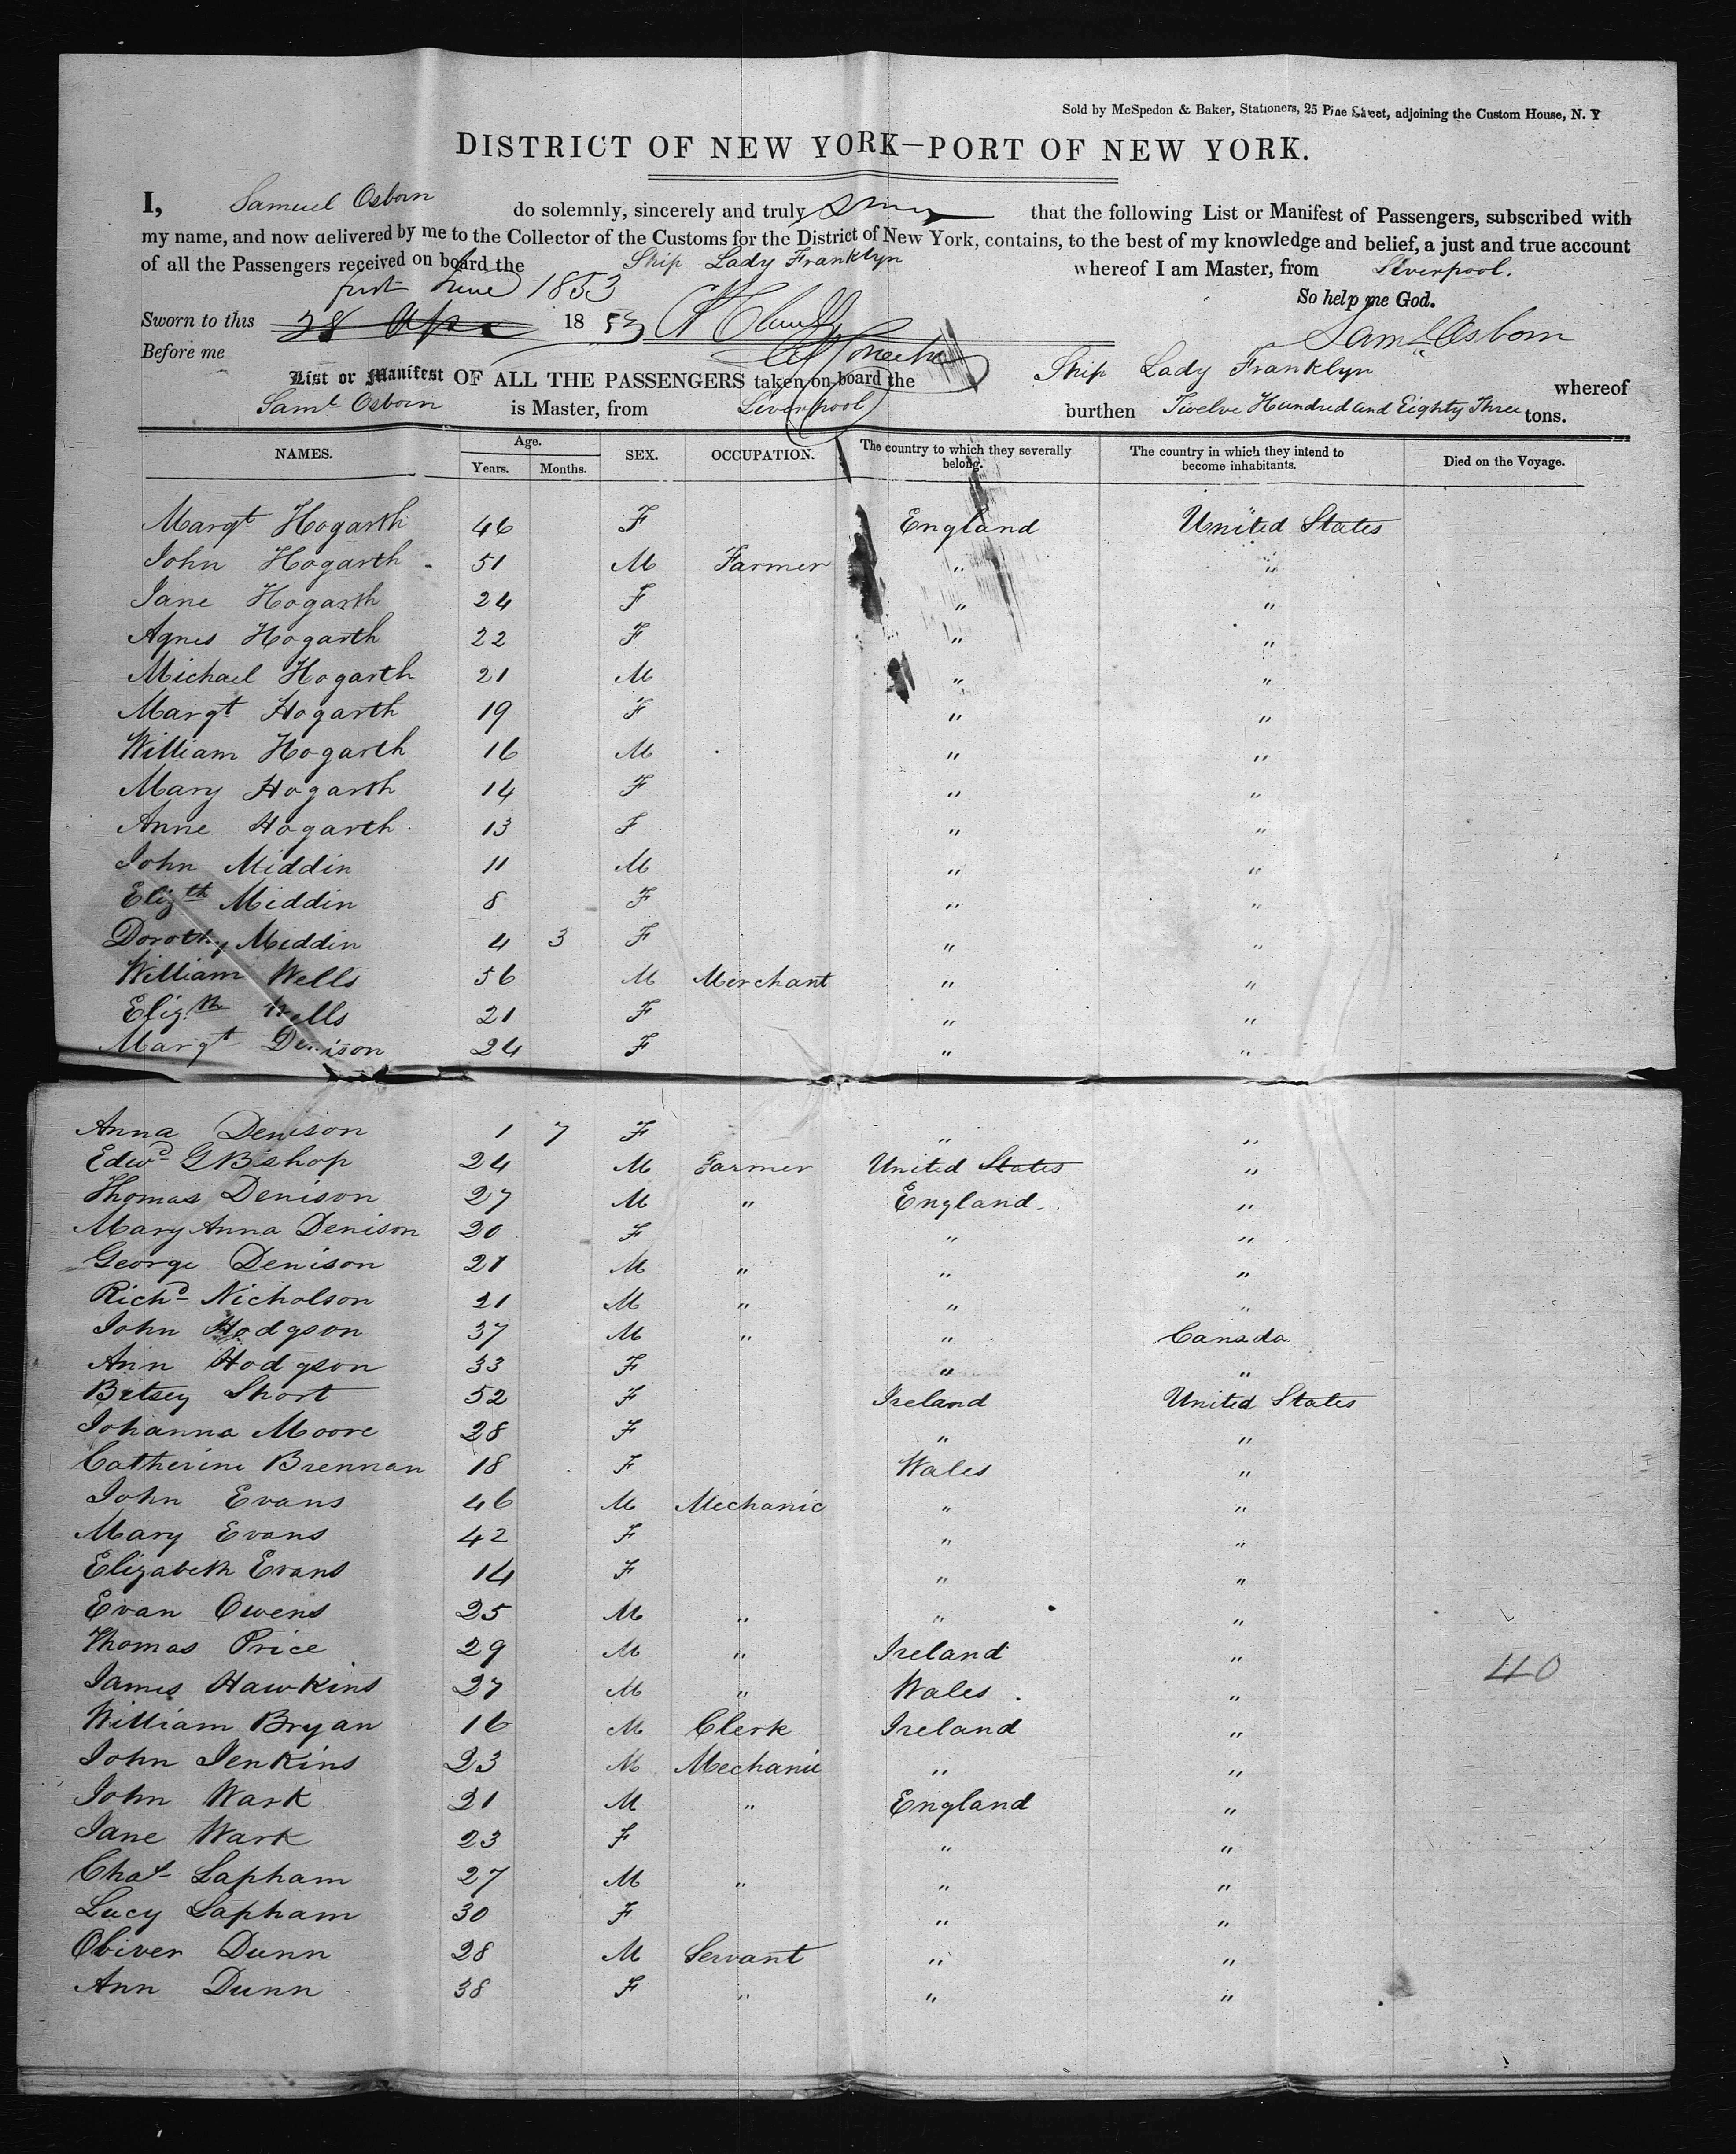 Sold by McSpedon & Baker, Stationers, 25 Pine Street, adjoining the Custom House, N. Y
DISTRICT OF NEW YORK—PORT OF NEW YORK.
I, Samuel Osborn do solemnly, sincerely and truly that the following List or Manifest of Passengers, subscribed with
my name, and now delivered by me to the Collector of the Customs for the District of New York, contains, to the best of my knowledge and belief, a just and true account
of all the Passengers received on board the Ship Lady Franklyn whereof I am Master, from Liverpool.
first June 1853
So help me God.
Sworn to this 28 Apr 1853
Saml Osborn
Before me
List or Manifest OF ALL THE PASSENGERS taken on board the Ship Lady Franklyn whereof
Saml Osborn is Master, from Liverpool burthen Twelve Hundred and Eighty Three tons.
NAMES. Age. Years. Months. SEX. OCCUPATION. The country to which they severally belong. The country in which they intend to become inhabitants. Died on the Voyage.
Margt Hogarth 46 F England United States
John Hogarth 51 M Farmer " "
Jane Hogarth 24 F " "
Agnes Hogarth 22 F " "
Michael Hogarth 21 M " "
Margt Hogarth 19 F " "
William Hogarth 16 M " "
Mary Hogarth 14 F " "
Anne Hogarth 13 F " "
John Middin 11 M " "
Elizth Middin 8 F " "
Dorothy Middin 4 3 F " "
William Wells 56 M Merchant " "
Elizth Wells 21 F " "
Margt Denison 24 F " "
Anna Denison 1 7 F " "
Edwd G Bishop 24 M Farmer United States "
Thomas Denison 27 M " England "
Mary Anna Denison 20 F " "
George Denison 21 M " " "
Richd Nicholson 21 M " " "
John Hodgson 37 M " " Canada
Ann Hodgson 33 F " "
Betsey Short 52 F Ireland United States
Johanna Moore 28 F " "
Catherine Brennan 18 F Wales "
John Evans 46 M Mechanic " "
Mary Evans 42 F " "
Elizabeth Evans 14 F " "
Evan Owens 25 M " " "
Thomas Price 29 M " Ireland "
40
James Hawkins 27 M " Wales "
William Bryan 16 M Clerk Ireland "
John Jenkins 23 M Mechanic " "
John Wark 21 M " England "
Jane Wark 23 F " "
Chas Lapham 27 M " " "
Lucy Lapham 30 F " "
Oliver Dunn 28 M Servant " "
Ann Dunn 38 F " " "